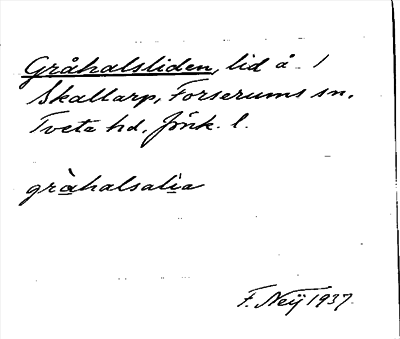 Gråhalsliden, lid å 1
Skallarp, Forserums sn,
Tveta hd, Jönk. l.
gràhalsalia
F. Neij 1937.